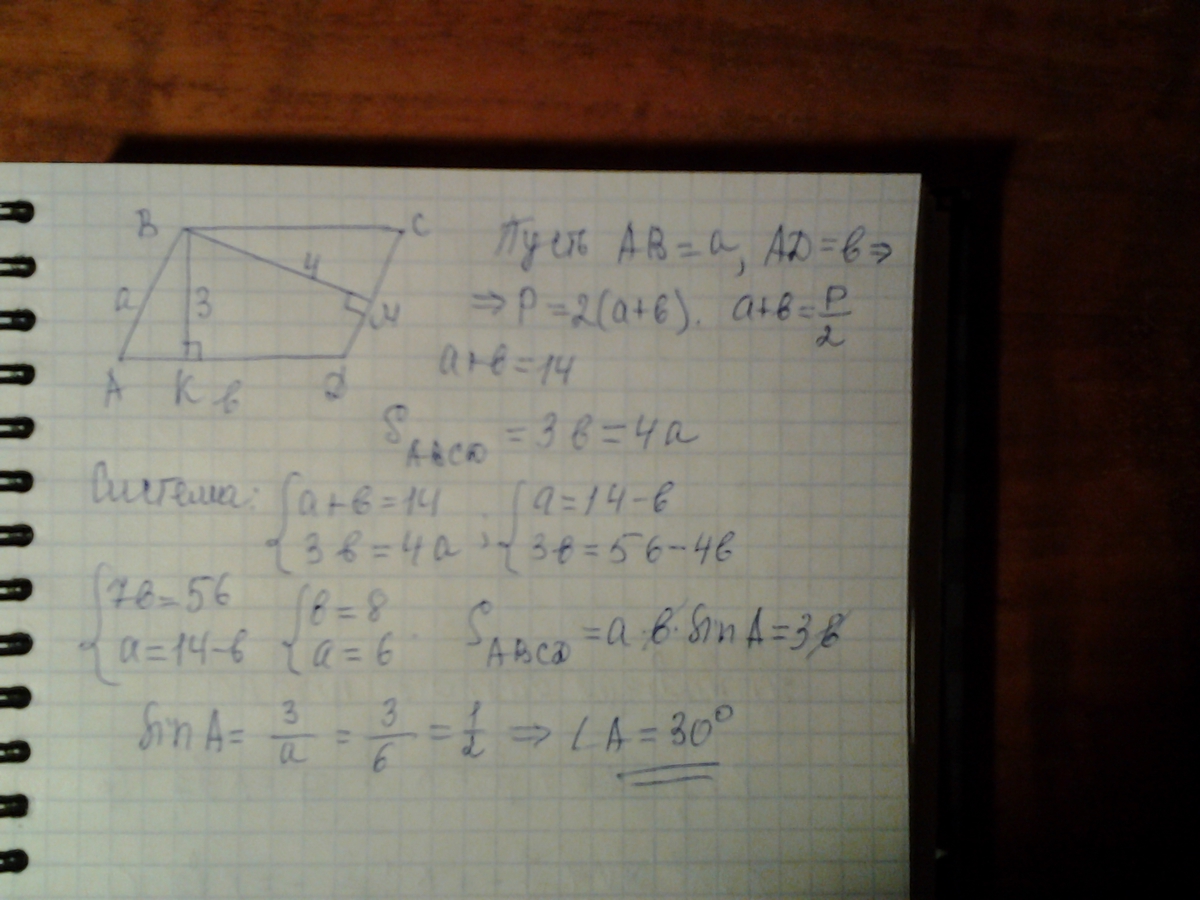 B C
a 4 3 M
A K в D
Пусть AB = a, AD = в ⇒
⇒ P = 2(a+в). a+в = P/2
a+в = 14
S_ABCD = 3в = 4a
Система: { a+в = 14 { a = 14-в
{ 3в = 4a ; { 3в = 56-4в
{ 7в = 56 { в = 8
{ a = 14-в { a = 6. S_ABCD = a·в·sin A = 3в
sin A = 3/a = 3/6 = 1/2 ⇒ ∠A = 30°